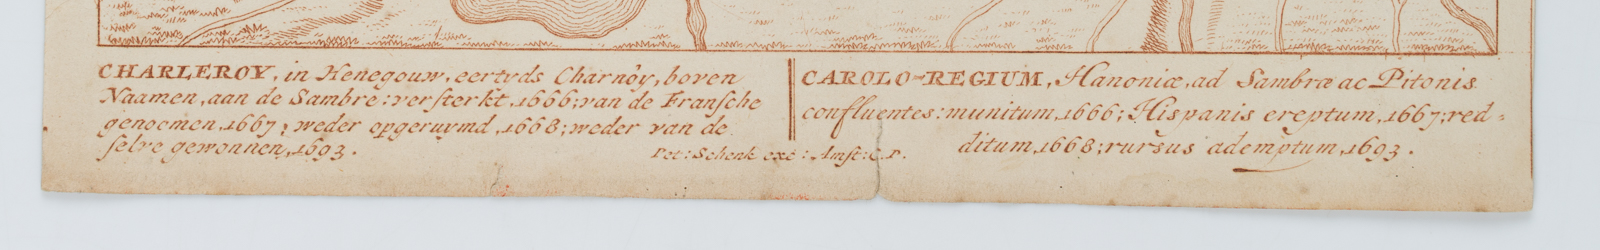 CHARLEROY, in Henegouw, eertyds Charnoy, boven
Naamen, aan de Sambre: versterkt, 1666; van de Fransche
genoomen, 1667; weder opgeruymd, 1668; weder van de
selve gewonnen, 1693.
Pet: Schenk exc: Amst: C.P.
CAROLO-REGIUM, Hanoniæ, ad Sambræ ac Pitonis
confluentes: munitum, 1666; Hispanis ereptum, 1667; red-
ditum, 1668; rursus ademptum, 1693.